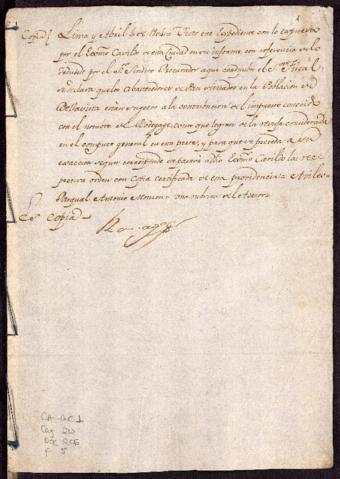 Copia Lima y Abril de Visto este Expediente con lo expuesto
por el Exmo Cavildo de esta Ciudad en su informe con referencia a lo
pedido por el Sindico Procurador a que contribuye el Sor Fiscal
se declara que los Abastecedores de Pan situados en la Poblacion de
Bellavista estan sugetos a la contribucion del impuesto conocido
con el nombre de Bodegage, como que logran de la revaja considerada
en el computo general en este pecho; y para que se proceda a su
execucion segun corresponde se pasará a dicho Exmo Cavildo la res-
pectiva orden con copia certificada de esta providencia = Aviles =
Pasqual Antonio Monzon = una rubrica del Asesor
Es copia
CA-GC1
Caj 20
Doc 206
f 5